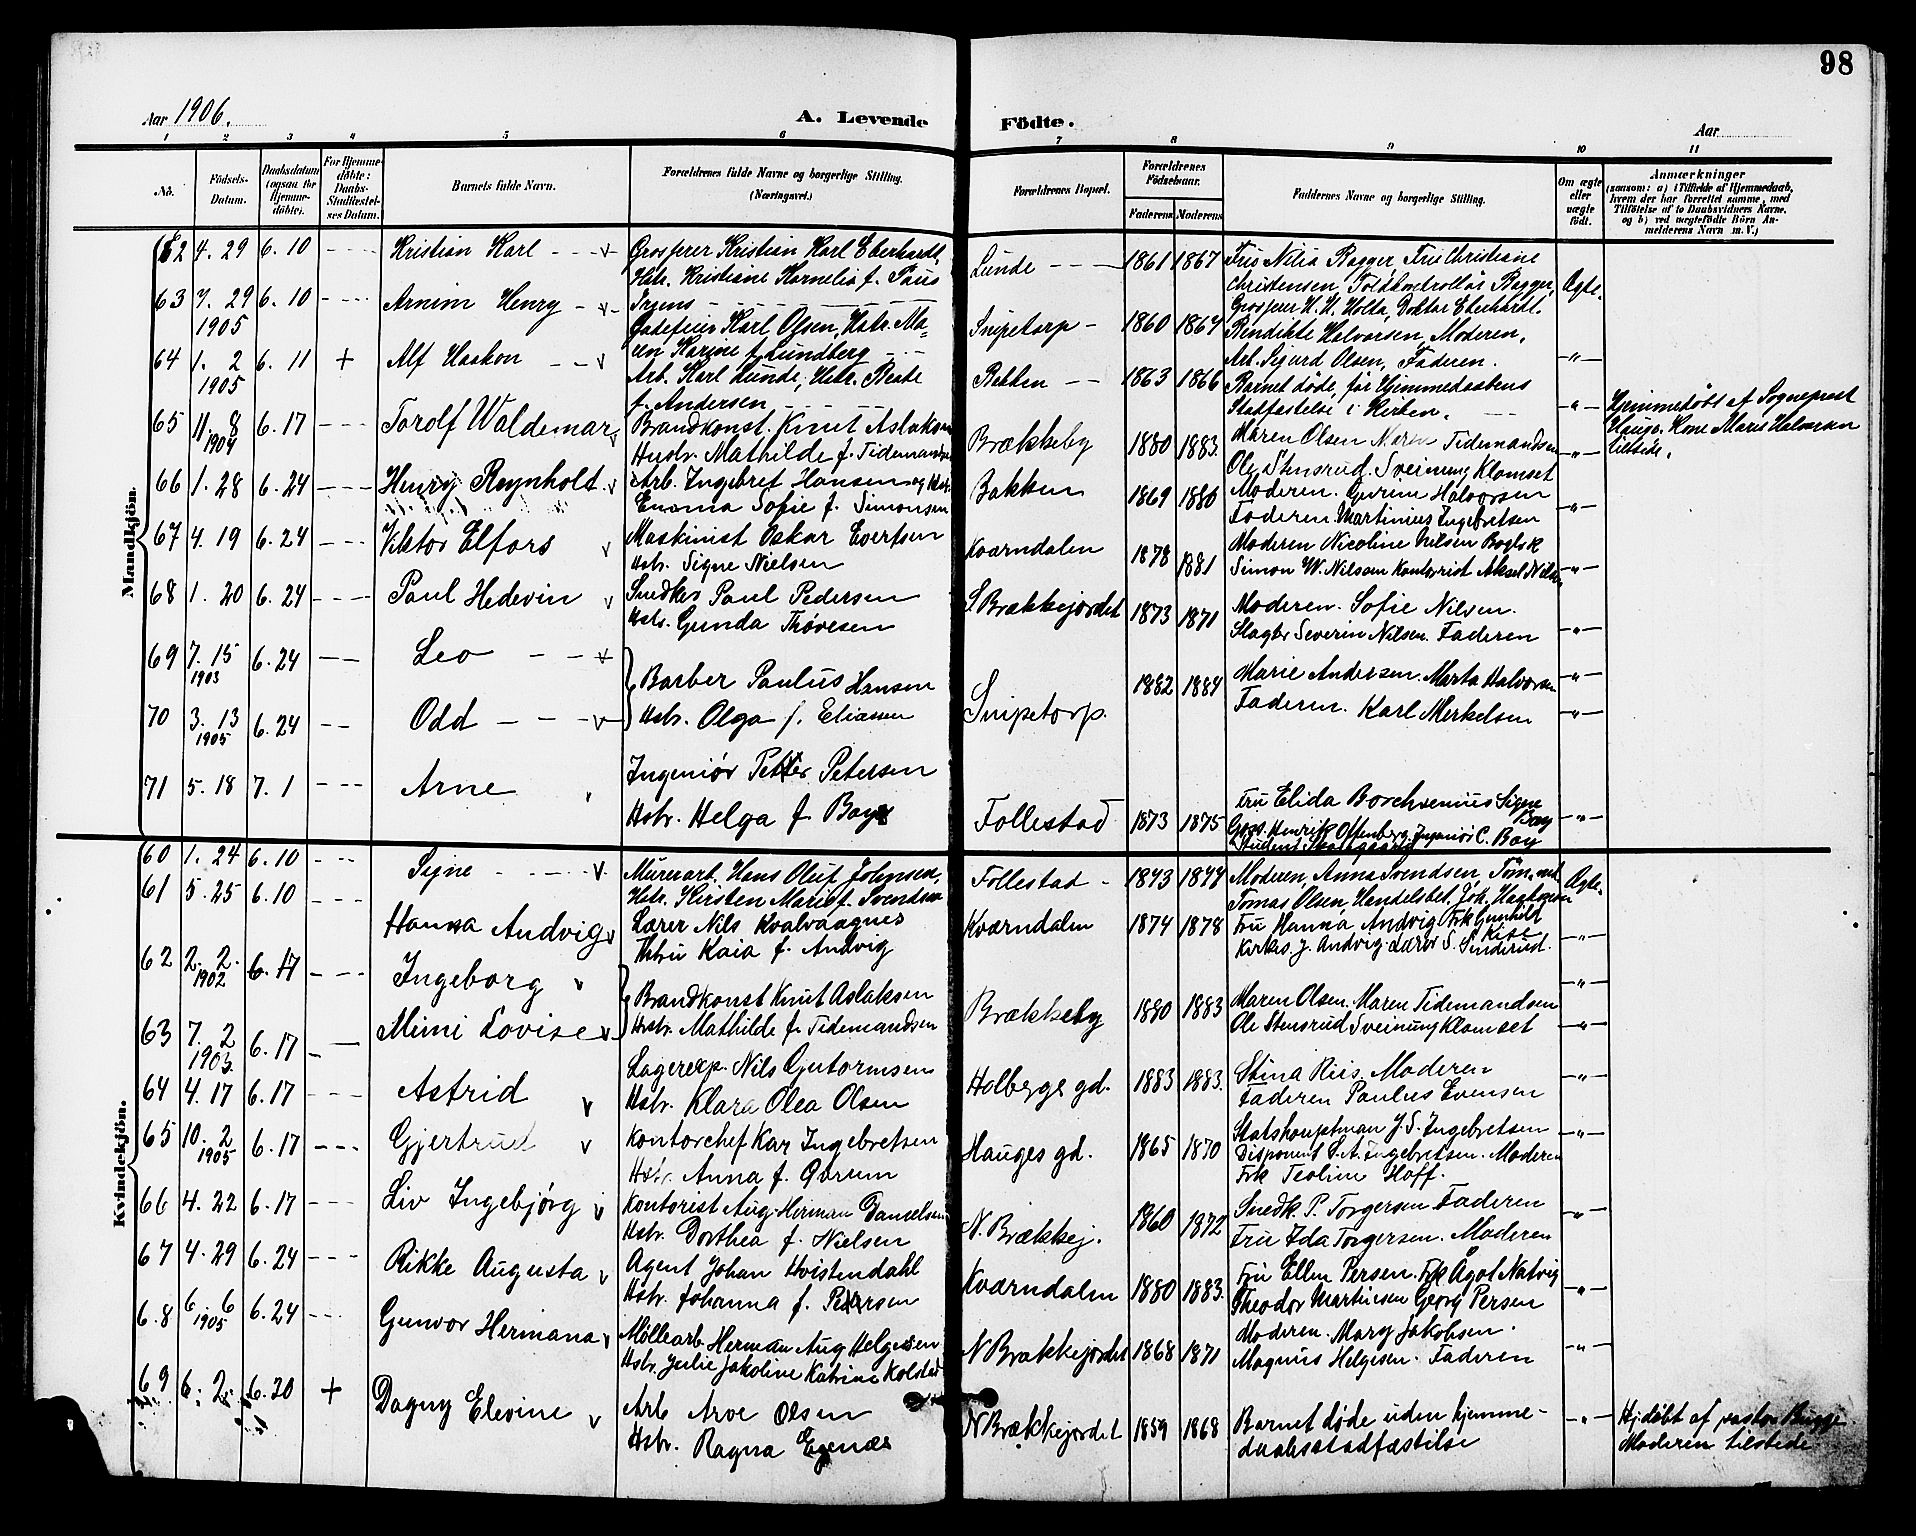 98
Aar 1906.
A. Levende Födte.
Aar
1 2 3 4 5 6 7 8 9 10 11
No.
Födsels-Datum.
Daabsdatum (ogsaa for Hjemmedöbte).
For Hjemmedöbte: Daabs-Stadfæstelses Datum.
Barnets fulde Navn.
Forældrenes fulde Navne og borgerlige Stilling. (Næringsvei.)
Forældrenes Bopæl.
Forældrenes Födselsaar.
Faderens Moderens
Faddernes Navne og borgerlige Stilling.
Om ægte eller uægte födt.
Anmærkninger
(saasom: a) i Tilfælde af Hjemmedaab, hvem der har forrettet samme, med Tilföielse af to Daabsvidners Navne, og b) ved uægtefödte Börn Anmelderens Navn m. V.)
Mandkjön.
62 4. 29 6. 10 Kristian Karl Grosserer Kristian Karl Eberhardt, Lunde 1861 1867
Hstr. Kristiane Kornelia f. Paus
Christensen, Toldkontrollör Bagger,
63 7. 29 1905 6. 10 Arnim Henry Karl Olsen, Hstr. Maren Karine f. Lundberg Snipetorp 1860 1864 Ægte.
Grosserer H. H. Holta, Doktor Eberhardt.
Bendikte Halvorsen, Moderen,
Arb. Sigurd Olsen, Faderen.
64 1. 2 1905 6. 11 + Alf Haakon Arb. Karl Lunde, Hstr. Beate f. Andersen Bakken 1863 1866
Barnet döde, för Hjemmedaabens
Stadfæstelse i Kirken.
Hjemmedöbt af Sogneprest
Hauge. Kone Marie Halvorsen
tilstede.
65 11. 8 1904 6. 17 Torolf Waldemar Brandkonst. Knut Aslaksen Brækkeby 1880 1883.
Hustr. Mathilde f. Tidemandsen
Maren Olsen Maren Tidemandsen
Ole Stensrud. Sveinung Klomset
66 1. 28 6. 24 Henry Reynholt Arb. Ingebret Hansen og Hstr. Bakken 1869 1880
Emma Sofie f. Simonsen
Moderen. Gurine Halvorsen
Faderen Martinius Ingebretsen
67 4. 19 6. 24 Viktor Elfors Maskinist Oskar Evertsen Kværndalen 1878 1881
Hstr. Signe Nielsen
Moderen Nicoline Nilsen
Simon W. Nilssen Kontorist Aksel Nilsen
68 1. 20 6. 24 Paul Hedevin Snedker Paul Pedersen S. Brækkejordet 1873 1871
Hstr. Gunda Thövesen
Moderen. Sofie Nilsen.
Slagter Severin Nilsen. Faderen
69 7. 15 1903 6. 24 Leo Barber Paulus Hansen 1882 1884
Marie Andersen. Marta Halvorsen
70 3. 13 1905 6. 24 Odd Hstr. Olga f. Eliassen Snipetorp.
Faderen. Karl Merkelsen
71 5. 18 7. 1 Arne Ingeniör Petter Petersen
Hstr. Helga f. Boye Follestad 1873 1875
Fru Elida Borchsenius Signe Boy
Gros. Henrik Offenberg, Ingeniör C. Boy
Kvindekjön.
60 1. 24 6. 10 Signe Murerarb. Hans Oluf Johnsen, Follestad 1873 1877
Hstr. Kirsten Marie f. Svendsen
Moderen, Anna Svendsen,
Tomas Olsen, Handelsbet. Joh. Ægte.
61 5. 25 6. 10 Hanna Andvig Lærer Nils Kvalvaagnes Kværndalen 1874 1878
Hstru Kaia f. Andvig
Fru Hanna Andvig Frk Gunhild Kise
Kirkes. J. Andvig. Lærer S. Sinderud.
62 2. 2. 1902 6. 17 Ingeborg Brandkonst Knut Aslaksen Brækkeby 1880 1883
Maren Olsen. Maren Tidemandsen
63 7. 2 1903. 6. 17 Mimi Lovise Hstr. Mathilde f. Tidemandsen
Ole Stensrud Sveinung Klomset
64 4. 17 6. 17 Astrid Lagerexp. Nils Gutormsen Holbergs gd. 1883 1883.
Hstr. Klara Olea Olsen
Stina Riis. Moderen
Faderen Paulus Evensen
65 10. 2 1905 6. 17 Gjertrud Kontorchef Kar Ingebretsen Hauges gd. 1865 1870
Hstr. Anna f. Qvrum
Statshauptman J. S. Ingebretsen
Disponent S. A. Ingebretsen. Moderen
Frk Teoline Hoff.
66 4. 22 6. 17 Liv Ingebjörg Kontorist Aug. Herman Danielsen N. Brækkej. 1860 1872
Hstr. Dorthea f. Nielsen
Snedk. P. Torgersen Faderen
Fru Ida Torgersen. Moderen
67 4. 29 6. 24 Rikke Augusta Agent Johan Hvistendahl Kværndalen 1880 1883.
Hstr. Johanna f. Petersen
Fru Ellen Persen. Frk Ågot Natvig
Theodor Martinsen Georg Persen
6.8 6. 6 1905 6. 24 Gunvor Hermana Möllearb. Herman Aug Helgesen N Brækkejordet 1868 1871
Hstr. Julie Jakoline Katrine Kolstad
Moderen. Mary Jakobsen.
Magnus Helgesen. Faderen
69 6. 2 6. 20 + Dagny Elevine Arb Arve Olsen N Brækkejordet 1859 1868
Hstr. Ragna Egenæs
Barnet döde uden hjemme-
daabsstadfæstelse
Hj. döbt af pastor Bugge
Moderen tilstede